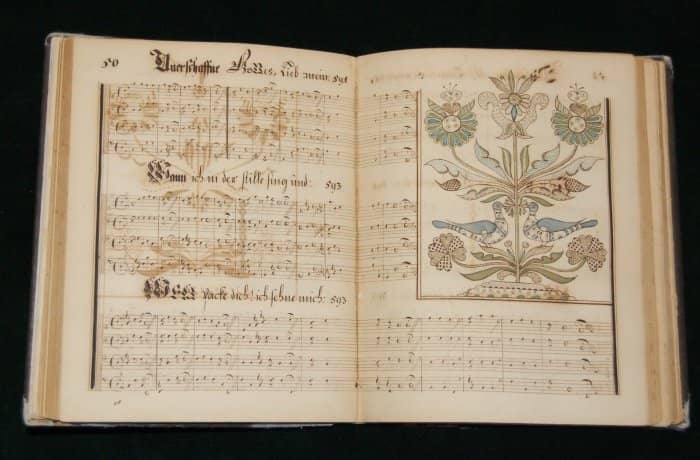 50 Unerschaffne Gottes, Lieb mein: 591
Wann ich in der stille sing und: 593
Welt packe dich ich sehne mich: 593